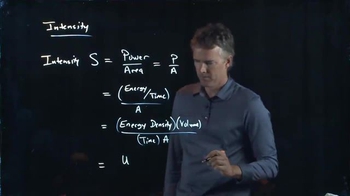 Intensity
Intensity S = Power/Area = P/A
= (Energy/Time)/A
= (Energy Density)(Volume)/(Time) A
= u